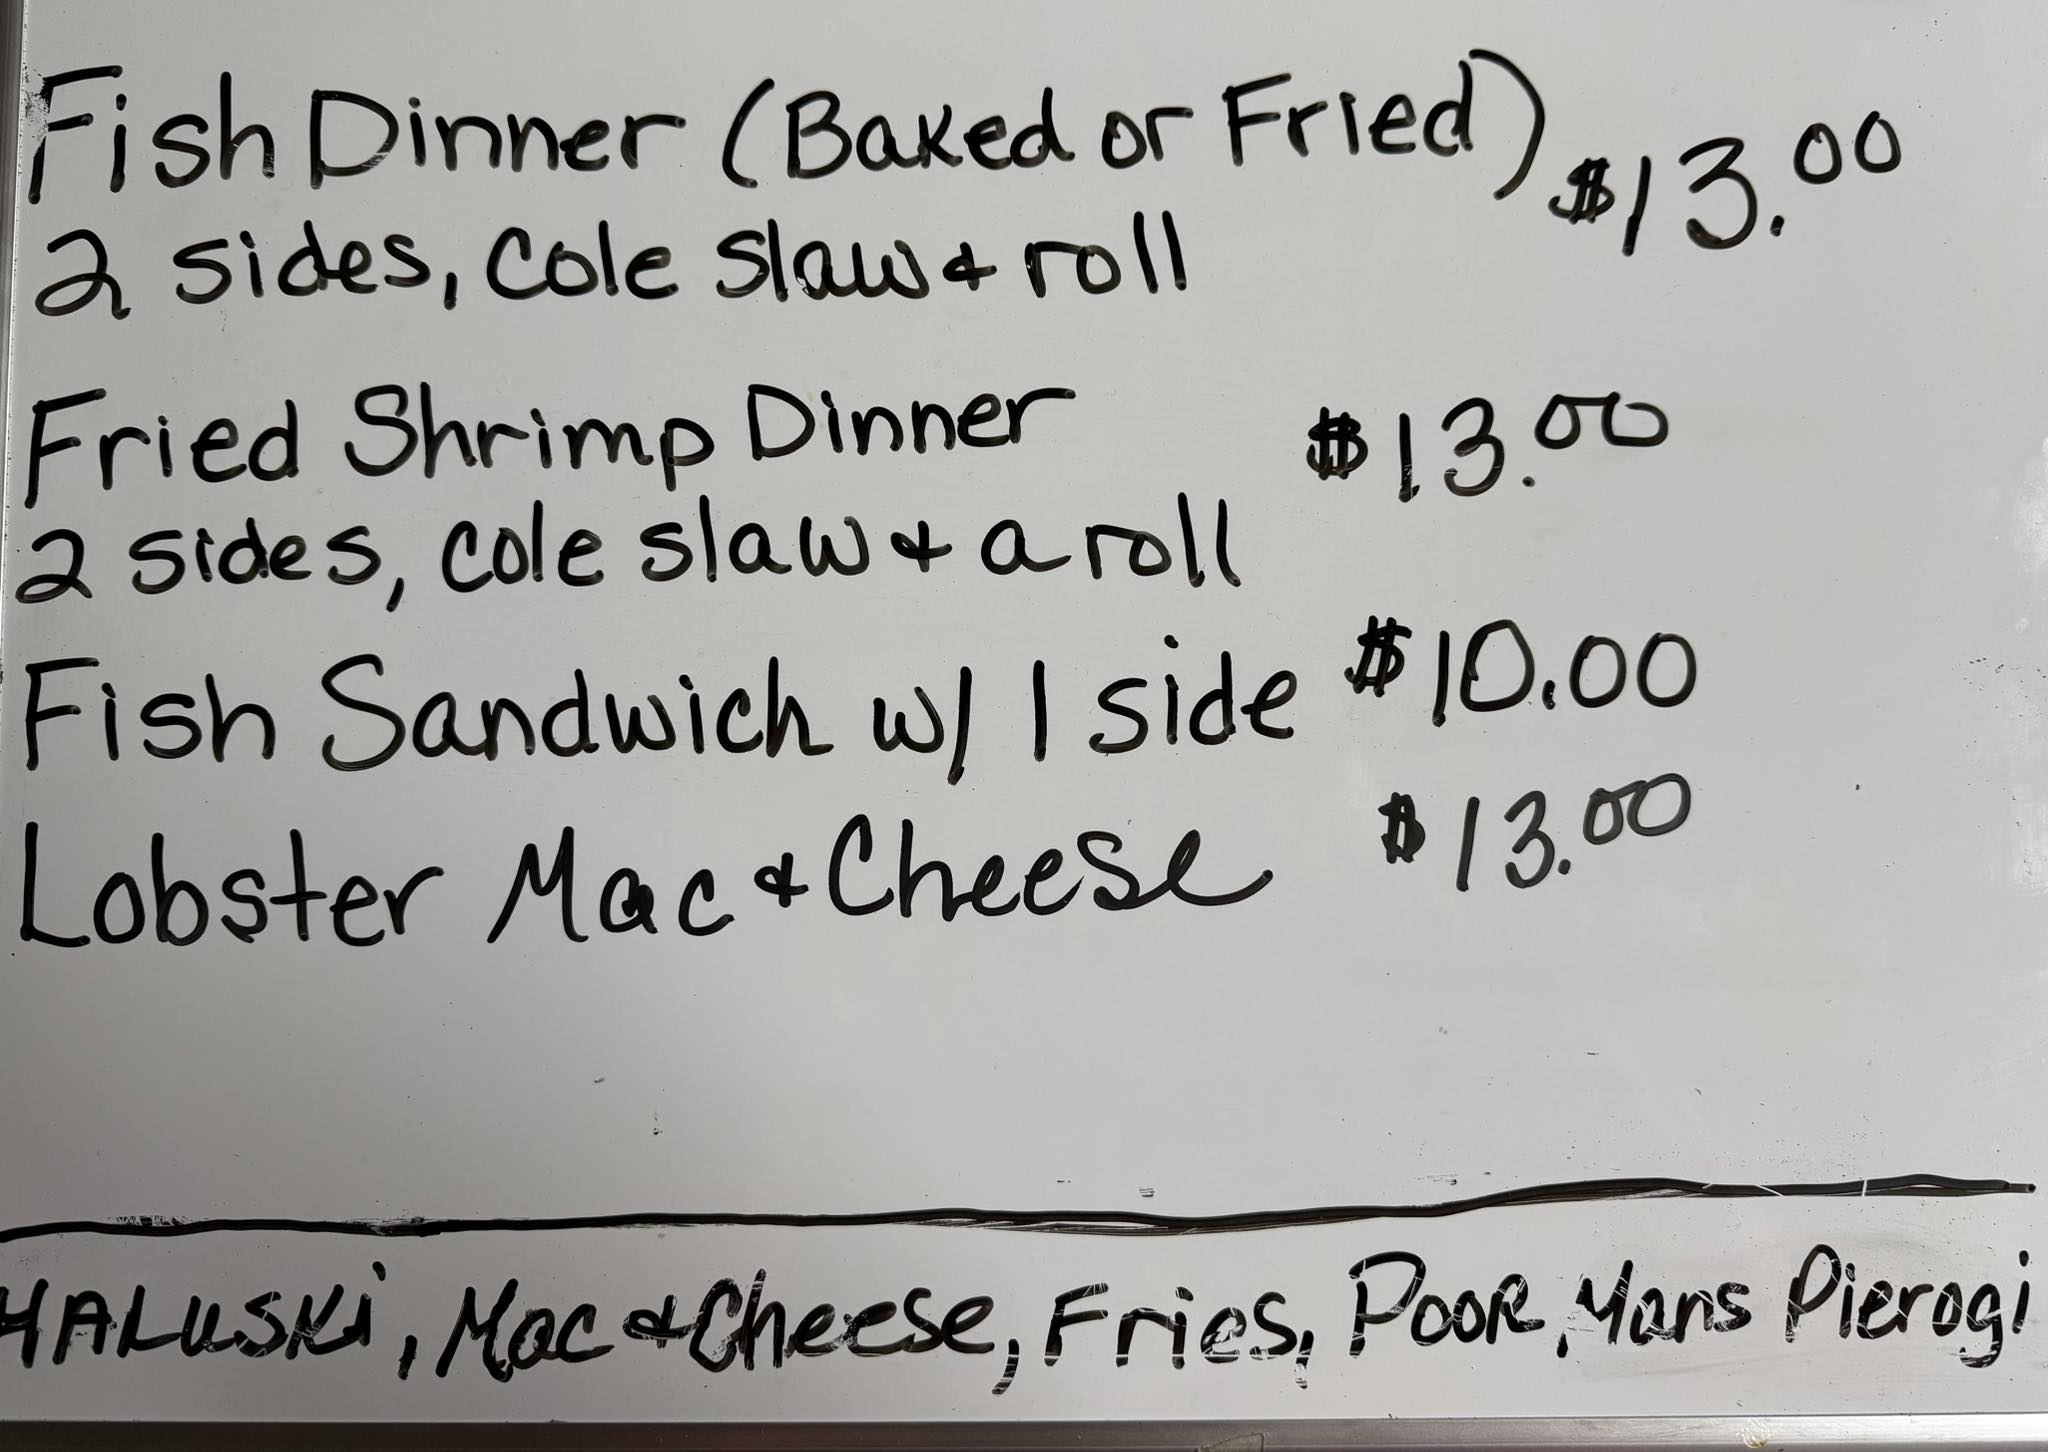 Fish Dinner (Baked or Fried) $13.00
2 sides, cole slaw & roll
Fried Shrimp Dinner $13.00
2 sides, cole slaw & a roll
Fish Sandwich w/ 1 side $10.00
Lobster Mac & Cheese $13.00
HALUSKi, Mac & Cheese, Fries, POOR Mans Pierogi